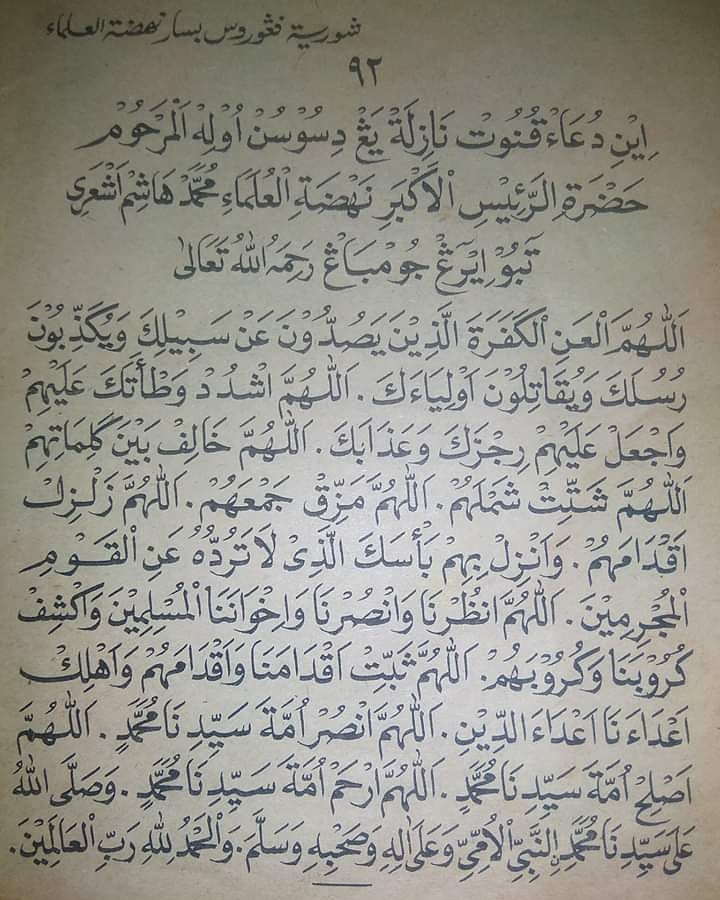 شورية فڠوروس بسار نهضة العلماء
٩٢
اِيْنِ دُعَاءْ قُنُوتْ نَازِلَةْ يَڠْ دِسُوْسُنْ اُوْلِهْ اَلْمَرْحُوْمِ
حَضْرَةِ الرَّئِيْسِ الْاَكْبَرِ نَهْضَةِ الْعُلَمَاءِ مُحَمَّدْ هَاشِمْ اَشْعَرِى
تَبُوْ اِيْرَڠْ جُوْمْبَاڠْ رَحِمَهُ اللهُ تَعَالَى
اَللّٰهُمَّ الْعَنِ الْكَفَرَةَ الَّذِيْنَ يَصُدُّوْنَ عَنْ سَبِيْلِكَ وَيُكَذِّبُوْنَ
رُسُلَكَ وَيُقَاتِلُوْنَ اَوْلِيَاءَكَ . اَللّٰهُمَّ اشْدُدْ وَطْأَتَكَ عَلَيْهِمْ
وَاجْعَلْ عَلَيْهِمْ رِجْزَكَ وَعَذَابَكَ . اَللّٰهُمَّ خَالِفْ بَيْنَ كَلِمَاتِهِمْ
اَللّٰهُمَّ شَتِّتْ شَمْلَهُمْ . اَللّٰهُمَّ مَزِّقْ جَمْعَهُمْ . اَللّٰهُمَّ زَلْزِلْ
اَقْدَامَهُمْ . وَاَنْزِلْ بِهِمْ بَأْسَكَ الَّذِىْ لَا تَرُدُّهُ عَنِ الْقَوْمِ
الْمُجْرِمِيْنَ . اَللّٰهُمَّ انْظُرْنَا وَانْصُرْنَا وَاِخْوَانَنَا الْمُسْلِمِيْنَ وَاكْشِفْ
كُرُوْبَنَا وَكُرُوْبَهُمْ . اَللّٰهُمَّ ثَبِّتْ اَقْدَامَنَا وَاَقْدَامَهُمْ وَاَهْلِكْ
اَعْدَاءَنَا اَعْدَاءَ الدِّيْنِ . اَللّٰهُمَّ انْصُرْ اُمَّةَ سَيِّدِنَا مُحَمَّدٍ . اَللّٰهُمَّ
اَصْلِحْ اُمَّةَ سَيِّدِنَا مُحَمَّدٍ . اَللّٰهُمَّ ارْحَمْ اُمَّةَ سَيِّدِنَا مُحَمَّدٍ . وَصَلَّى اللهُ
عَلَى سَيِّدِنَا مُحَمَّدٍ النَّبِيِّ الْاُمِّيِّ وَعَلَى اٰلِهِ وَصَحْبِهِ وَسَلَّمَ . وَالْحَمْدُ لِلّٰهِ رَبِّ الْعَالَمِيْنَ .